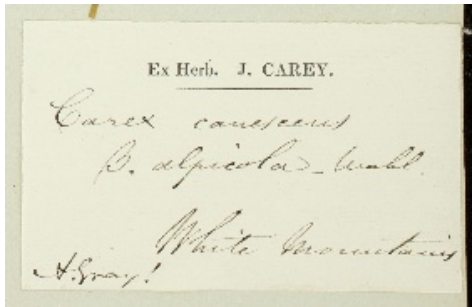 Ex Herb. J. CAREY.
Carex canescens
β. alpicola - Wahl.
White Mountains
A. Gray!